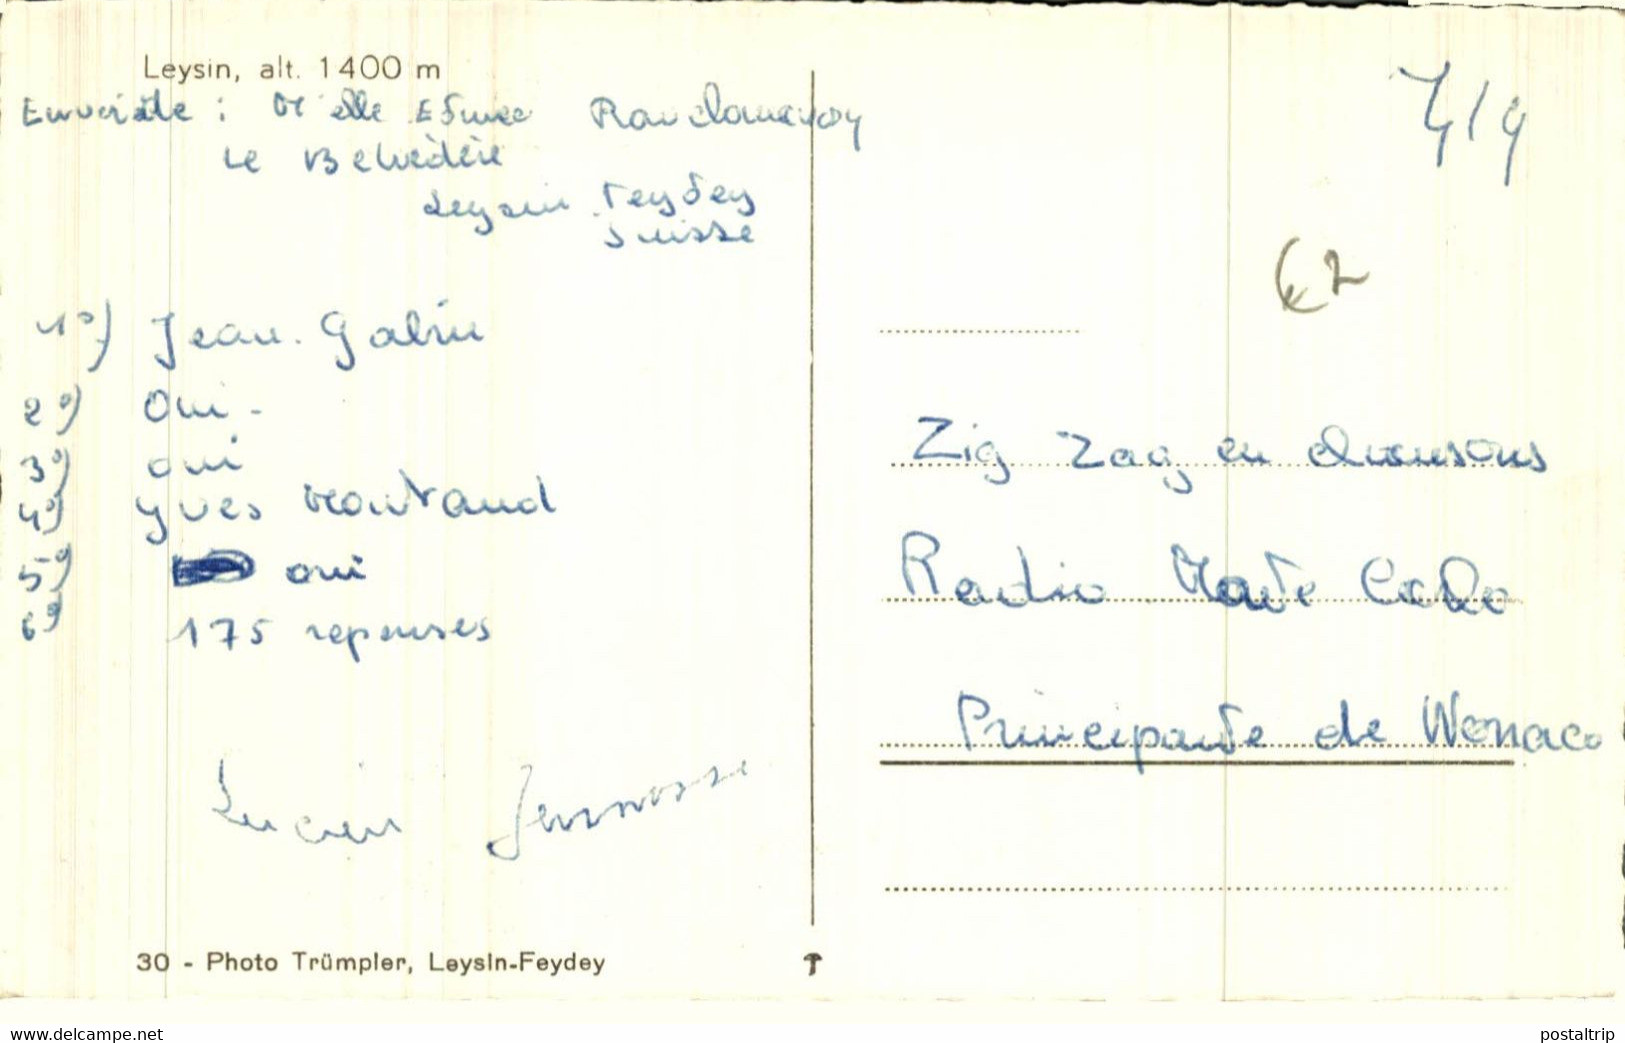 Leysin, alt. 1400 m
: Melle
Le Belvédère
Leysin Feydey
Suisse
1°) Jean. Gabin
2°) Oui -
3°) oui
4°) Yves Montand
5°) oui
6° 175 reponses
Lucien
30 - Photo Trümpler, Leysin-Feydey
€2
Zig Zag en chansons
Radio Monte Carlo
Principauté de Monaco
www.delcampe.net
postaltrip